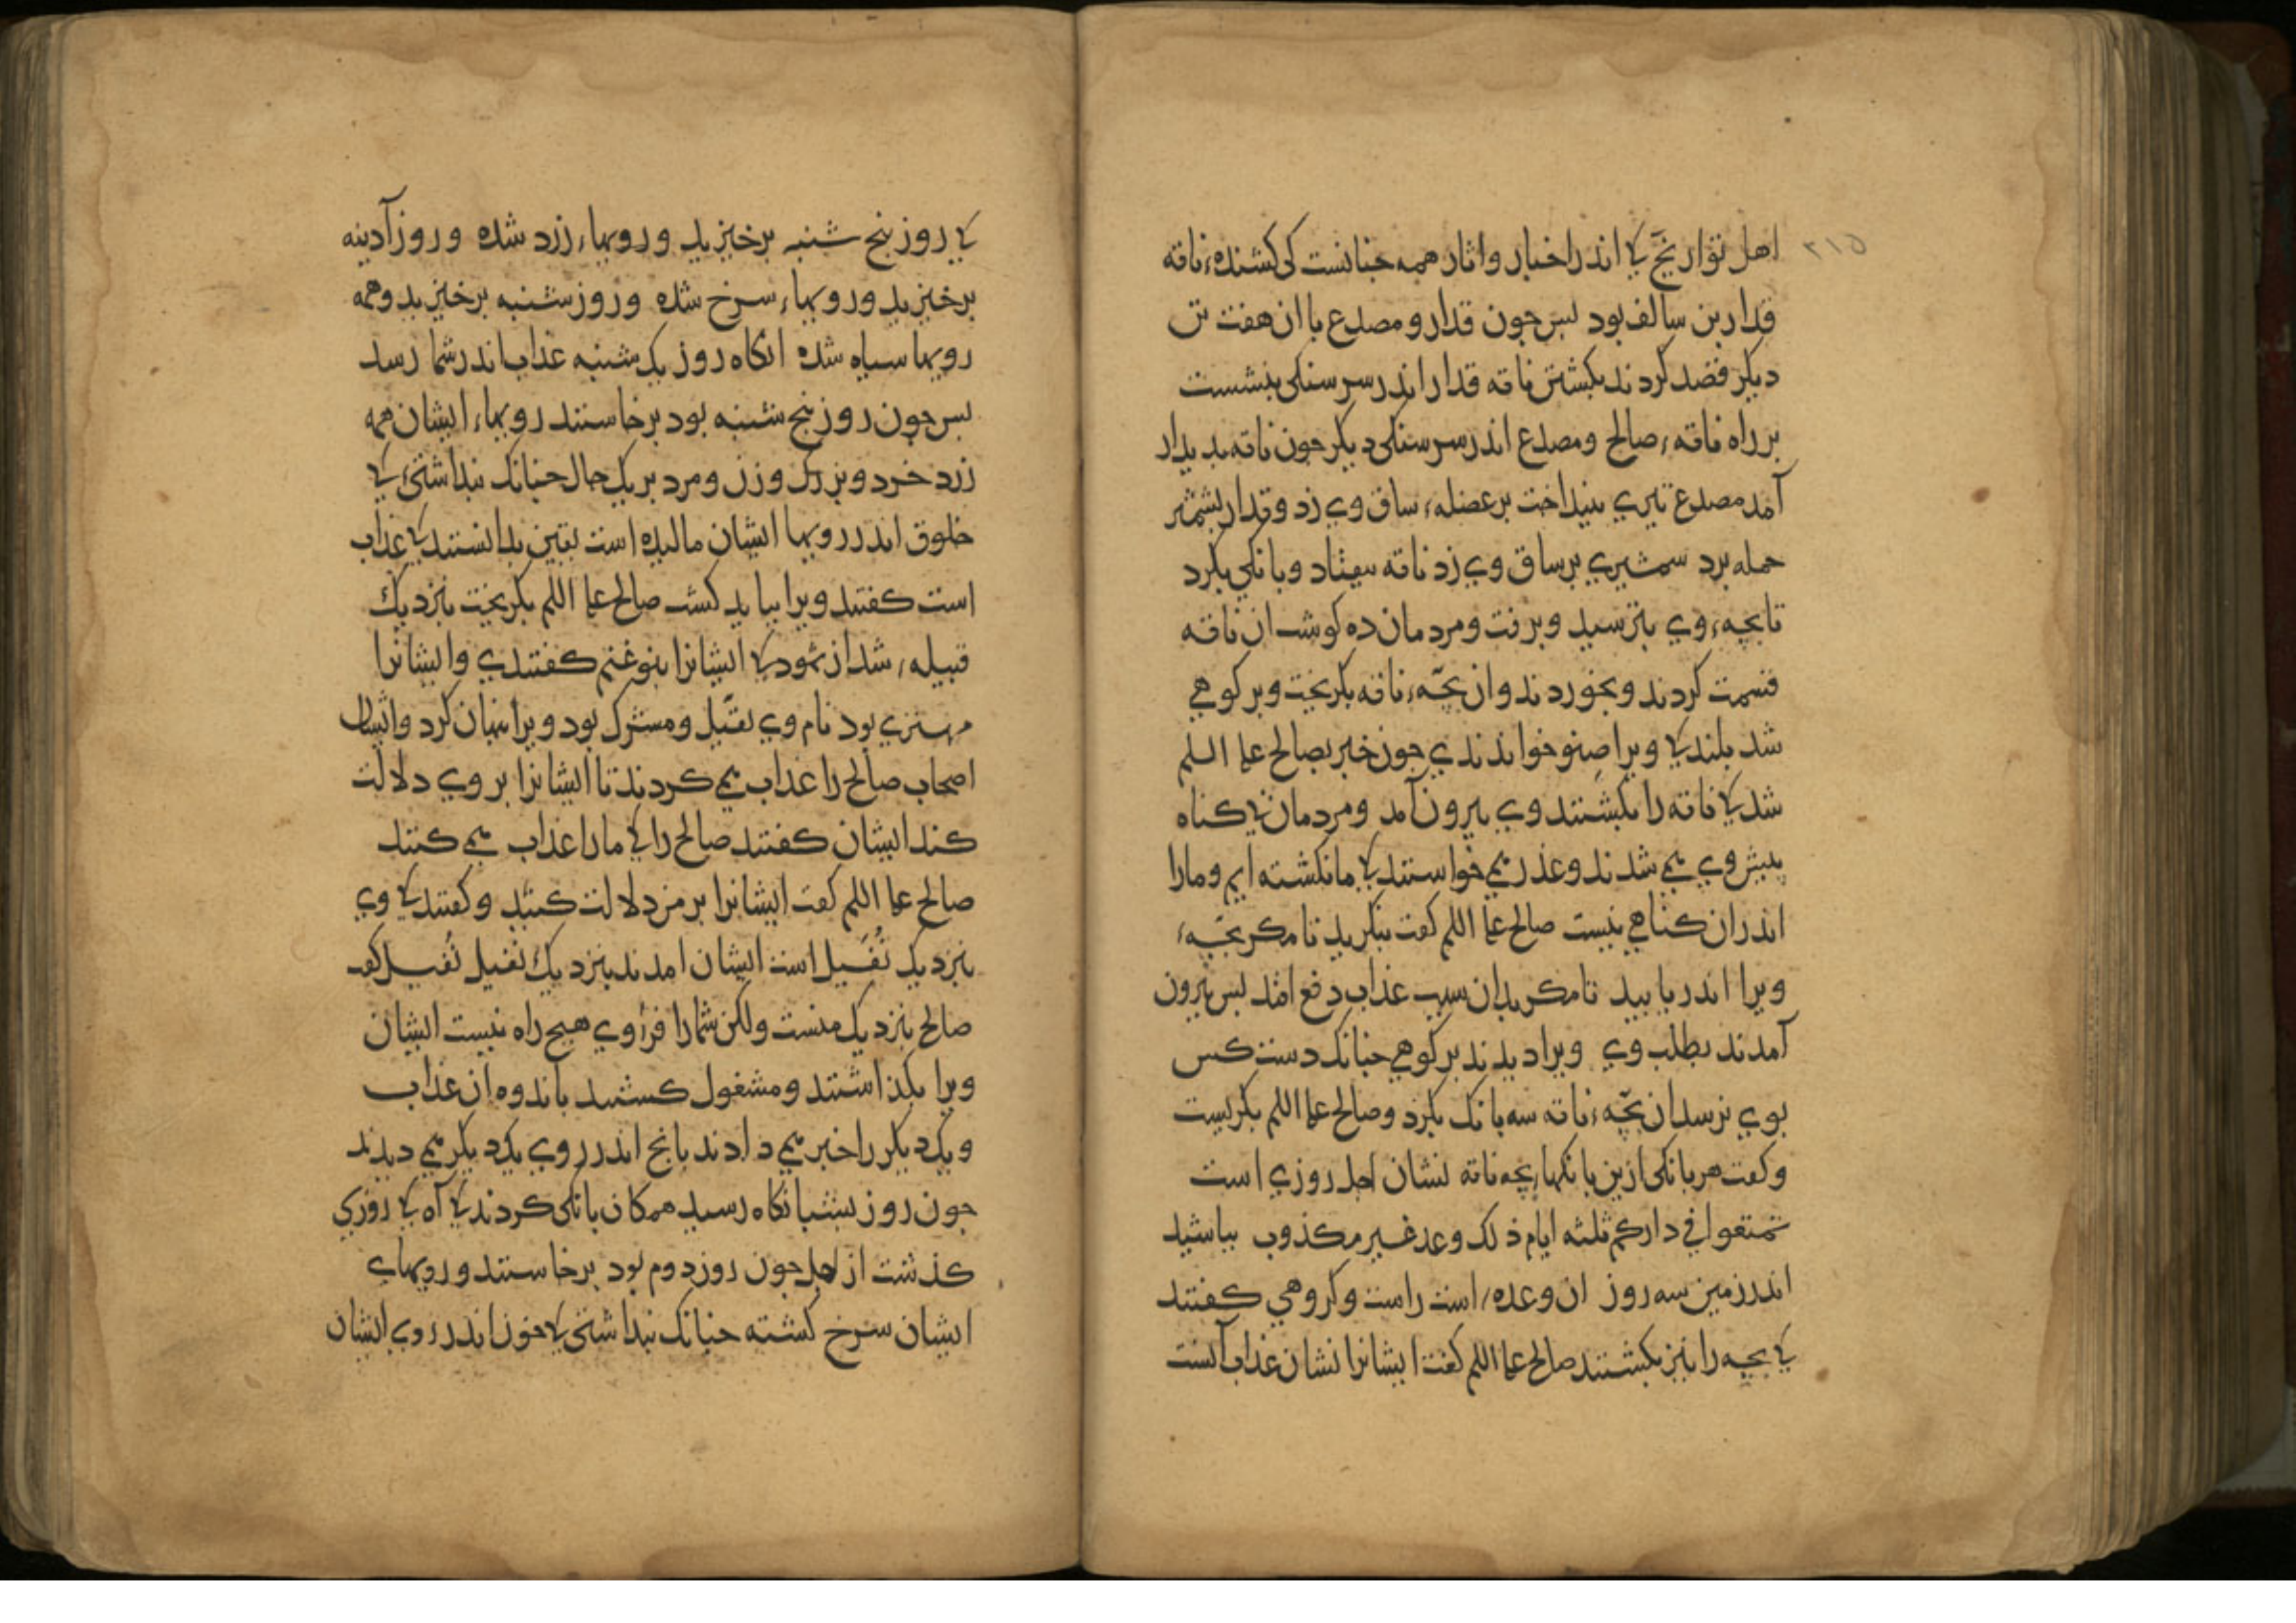 ٢١٥
اهل تواریخ کی اندر اخبار و اثار همه جنانست کی کشندهٔ ناقه
قدار بن سالف بود بس جون قدار و مصدع با ان هفت تن
دیکر قصد کردند بکشتن ناقه قدار اندر سر سنکی بنشست
بر راه ناقهٔ صالح و مصدع اندر سر سنکی دیکر جون ناقه بدیدار
آمد مصدع تیری بینداخت بر عضلهٔ ساق وی زد و قدار بشمشیر
حمله برد شمشیری بر ساق وی زد ناقه بیفتاد و بانکی بکرد
تا بچهٔ وی بترسید و برفت و مردمان ده کوشت ان ناقه
قسمت کردند و بخوردند و ان بچّهٔ ناقه بکریخت و بر کوهی
شد بلند کی ویرا صنو خواندندی جون خبر بصالح علیه السلم
شد کی ناقه را بکشتند وی بیرون آمد و مردمان بی کناه
ببیش وی می شدند و عذر می خواستند کی ما نکشته ایم و مارا
اندران کناهی نیست صالح علیه السلم کفت بنکرید تا مکر بچّهٔ
ویرا اندر یابید تا مکر بدان سبب عذاب دفع افتد بس بیرون
آمدند بطلب وی ویرا دیدند بر کوهی جنانک دست کس
بوی نرسد ان بچّهٔ ناقه سه بانک بکرد و صالح علیه السلم بکریست
و کفت هر بانکی ازین بانکهاء بچه ناقه نشان اجل روزی است
تمتعوا فی دارکم ثلثه ایام ذلک وعد غیر مکذوب بباشید
اندر زمین سه روز ان وعدهٔ است راست و کروهی کفتند
کی بچه را نیز بکشتند صالح علیه السلم کفت ایشانرا نشان عذاب آنست
کی روز بنج شنبه برخیزید و رویهاء زرد شده و روز آدینه
برخیزید و رویهاء سرخ شده و روز شنبه برخیزید و همه
رویها سیاه شده انکاه روز یک شنبه عذاب اندر شما رسد
بس جون روز بنج شنبه بود برخاستند رویهاء ایشان همه
زرد خرد و بزرک و زن و مرد بر یک حال جنانک بنداشتیٔ کی
خلوق اندر رویها ایشان مالیده است بیقین بدانستند کی عذاب
است کفتند ویرا بباید کشت صالح علیه السلم بکریخت بنزدیک
قبیلهٔ شد از ثمود کی ایشانرا بنو غنم کفتندی و ایشانرا
مهتری بود نام وی نفیل و مشرک بود ویرا بنهان کرد و ایشان
اصحاب صالح را عذاب می کردند تا ایشانرا بر وی دلالت
کند ایشان کفتند صالح را کی مارا عذاب می کنند
صالح علیه السلم کفت ایشانرا بر من دلالت کنید و کفتند کی وی
بنزدیک نُفَیل است ایشان امدند بنزدیک نفیل نُفَیل کفت
صالح بنزدیک منست ولکن شما را فرا وی هیج راه نیست ایشان
ویرا بکذاشتند و مشغول کشتند باندوه ان عذاب
و یکدیکر را خبر می دادند بانج اندر روی یکدیکر می دیدند
جون روز بشبانکاه رسید همکان بانکی کردند کی آه کی روزی
کذشت از اجل جون روز دوم بود برخاستند و رویهای
ایشان سرخ کشته جنانک بنداشتی کی خون اندر روی ایشان